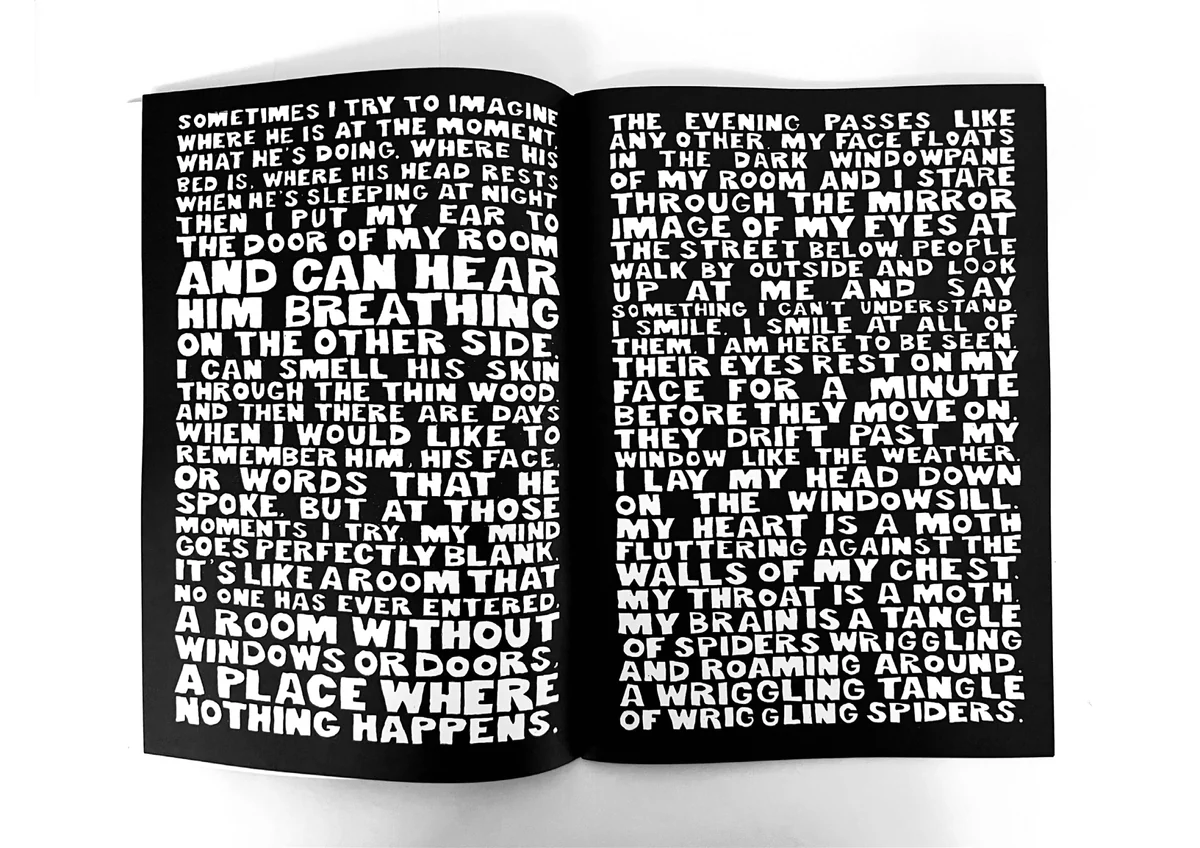 SOMETIMES I TRY TO IMAGINE
WHERE HE IS AT THE MOMENT,
WHAT HE'S DOING, WHERE HIS
BED IS, WHERE HIS HEAD RESTS
WHEN HE'S SLEEPING AT NIGHT
THEN I PUT MY EAR TO
THE DOOR OF MY ROOM
AND CAN HEAR
HIM BREATHING
ON THE OTHER SIDE.
I CAN SMELL HIS SKIN
THROUGH THE THIN WOOD.
AND THEN THERE ARE DAYS
WHEN I WOULD LIKE TO
REMEMBER HIM, HIS FACE,
OR WORDS THAT HE
SPOKE. BUT AT THOSE
MOMENTS I TRY, MY MIND
GOES PERFECTLY BLANK.
IT'S LIKE A ROOM THAT
NO ONE HAS EVER ENTERED.
A ROOM WITHOUT
WINDOWS OR DOORS,
A PLACE WHERE
NOTHING HAPPENS.
THE EVENING PASSES LIKE
ANY OTHER. MY FACE FLOATS
IN THE DARK WINDOWPANE
OF MY ROOM AND I STARE
THROUGH THE MIRROR
IMAGE OF MY EYES AT
THE STREET BELOW. PEOPLE
WALK BY OUTSIDE AND LOOK
UP AT ME AND SAY
SOMETHING I CAN'T UNDERSTAND.
I SMILE. I SMILE AT ALL OF
THEM. I AM HERE TO BE SEEN.
THEIR EYES REST ON MY
FACE FOR A MINUTE
BEFORE THEY MOVE ON.
THEY DRIFT PAST MY
WINDOW LIKE THE WEATHER.
I LAY MY HEAD DOWN
ON THE WINDOWSILL.
MY HEART IS A MOTH
FLUTTERING AGAINST THE
WALLS OF MY CHEST.
MY THROAT IS A MOTH.
MY BRAIN IS A TANGLE
OF SPIDERS WRIGGLING
AND ROAMING AROUND.
A WRIGGLING TANGLE
OF WRIGGLING SPIDERS.